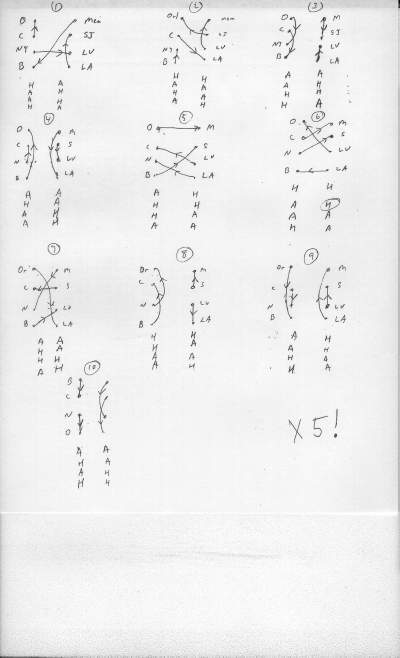 ① ② ③
O Mem Orl mem O M
C SJ C SJ C SJ
NY LV NJ LV NJ LV
B LA B LA B LA
H A H H A A
A H A A A H
A H H A H H
H A A H H A
④ ⑤ ⑥
O M O M O M
C S C S C S
N LV N LV N LV
B LA B LA B LA
A A A H H H
H A H H A H
A H H A A A
A H A A H A
⑦ ⑧ ⑨
Or M Or M Or M
C S C S C S
N LV N LV N LV
B LA B LA B LA
A A H H A H
H A H A A H
H H A A H A
A H A H H A
⑩
B
C
N
O
A A
H A
A H
H H
X 5!